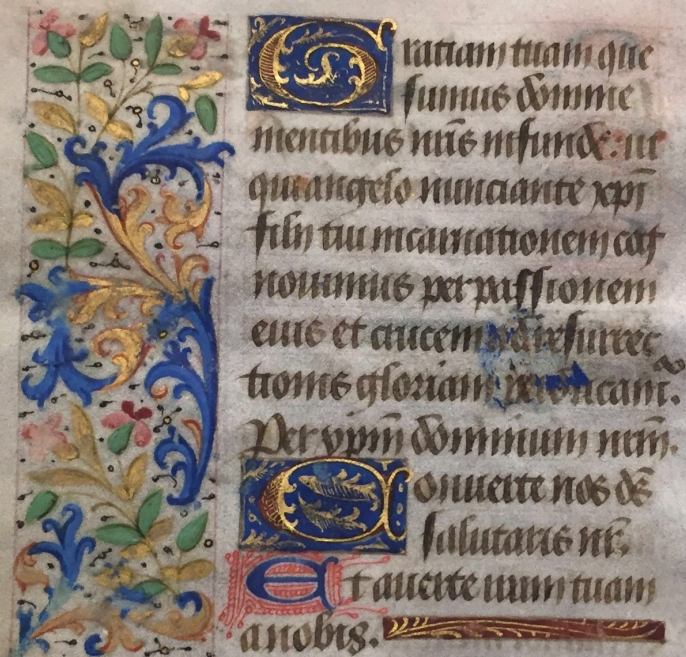 Gratiam tuam que
sumus domine
mentibus nr̄is infunde: ut
qui angelo nunciante xp̄i
filij tui incarnationem cog
nouimus per passionem
eius et crucem ad resurrec
tionis gloriam perducam̄.
Per xp̄m dominum nr̄m.
Conuerte nos ds̄
salutaris nr̄.
Et auerte iram tuam
a nobis.